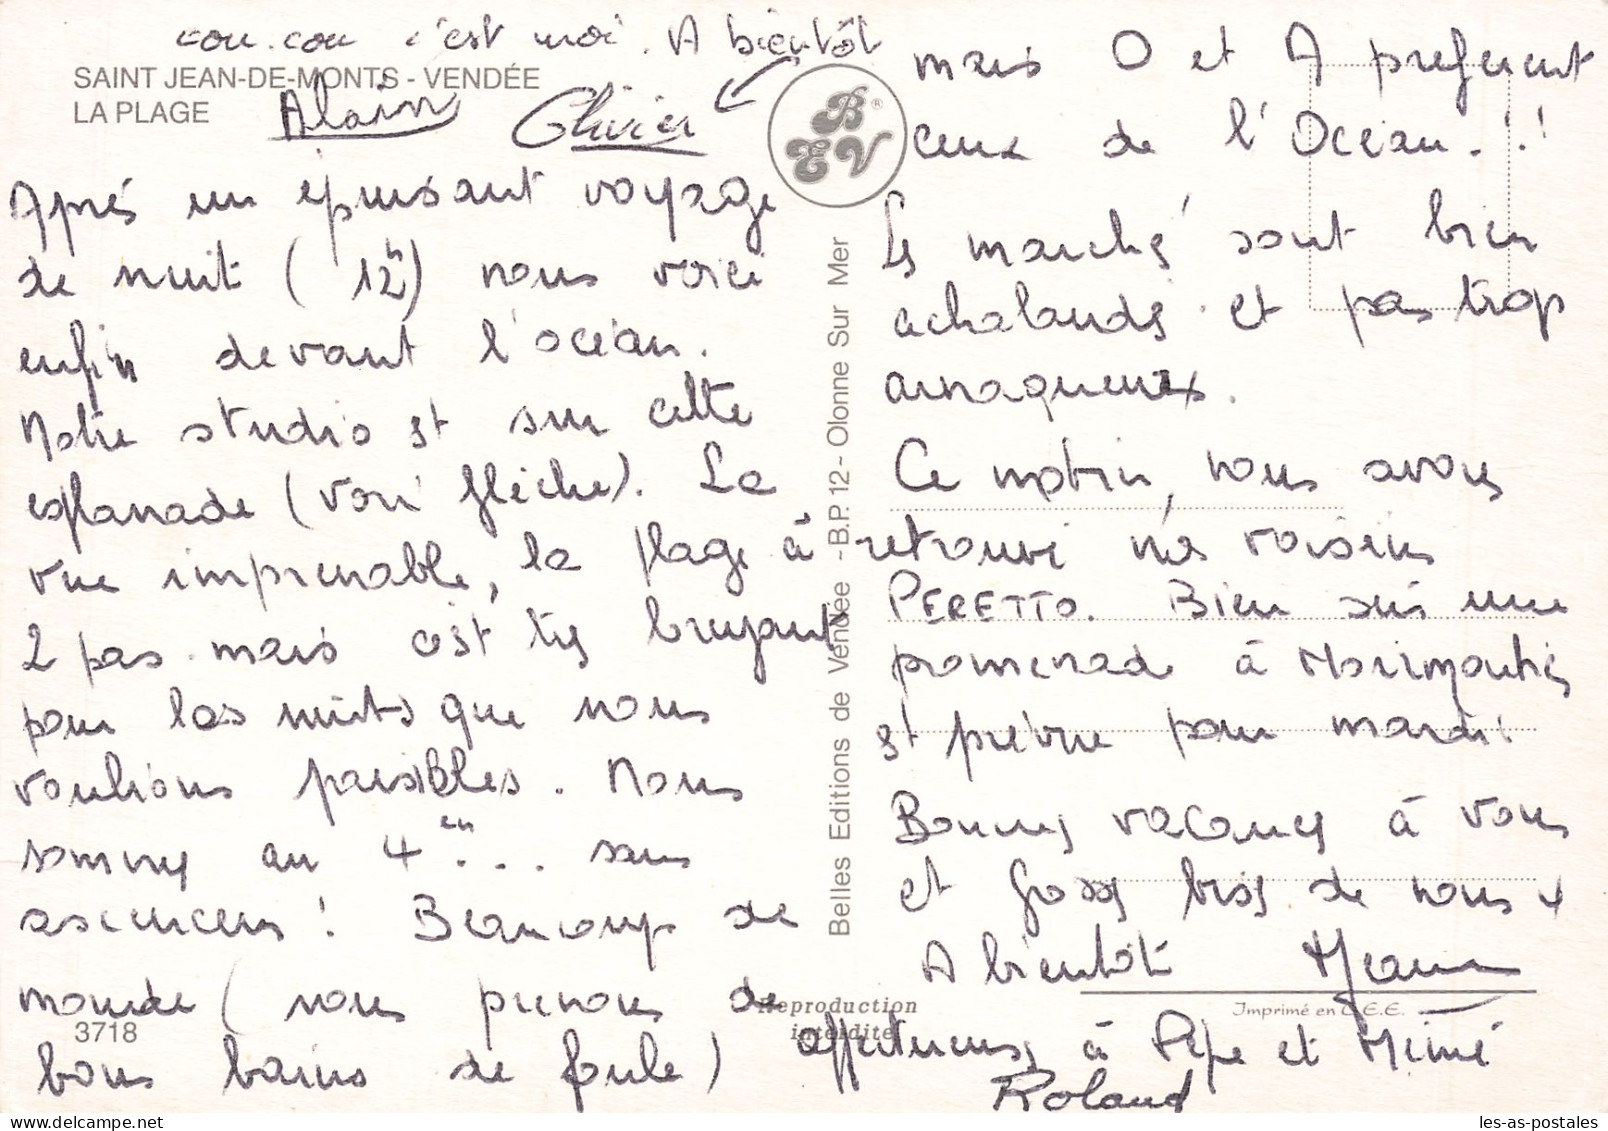 cou.cou c'est moi. A bientôt
SAINT JEAN-DE-MONTS - VENDÉE
LA PLAGE
Alain
Olivier
B E V ®
Après un épuisant voyage
de nuit (12h) nous voici
enfin devant l'océan.
Notre studio est sur cette
esplanade (voir flèche). La
vue imprenable, la plage à
2 pas. mais c'est très bruyant
pour les nuits que nous
voulions paisibles. Nous
sommes au 4en... sans
ascenceur ! Beaucoup de
monde (nous prenons de
bons bains de foule)
3718
Belles Editions de Vendée - B.P. 12 - Olonne Sur Mer
Reproduction
interdite
mais O et A preferent
ceux de l'Océan.!!
Les marchés sont bien
achalandés et pas trop
arnaqueurs.
Ce matin, nous avons
retrouvé nos voisins
PERETTO. Bien sûr une
promenade à Noirmoutiers
est prévue pour mardi.
Bonnes vacances à vous
et gross bises de nous 4
A bientôt
Imprimé en C.E.E.
affectueuses à Pépé et Mémé
Roland
les-as-postales